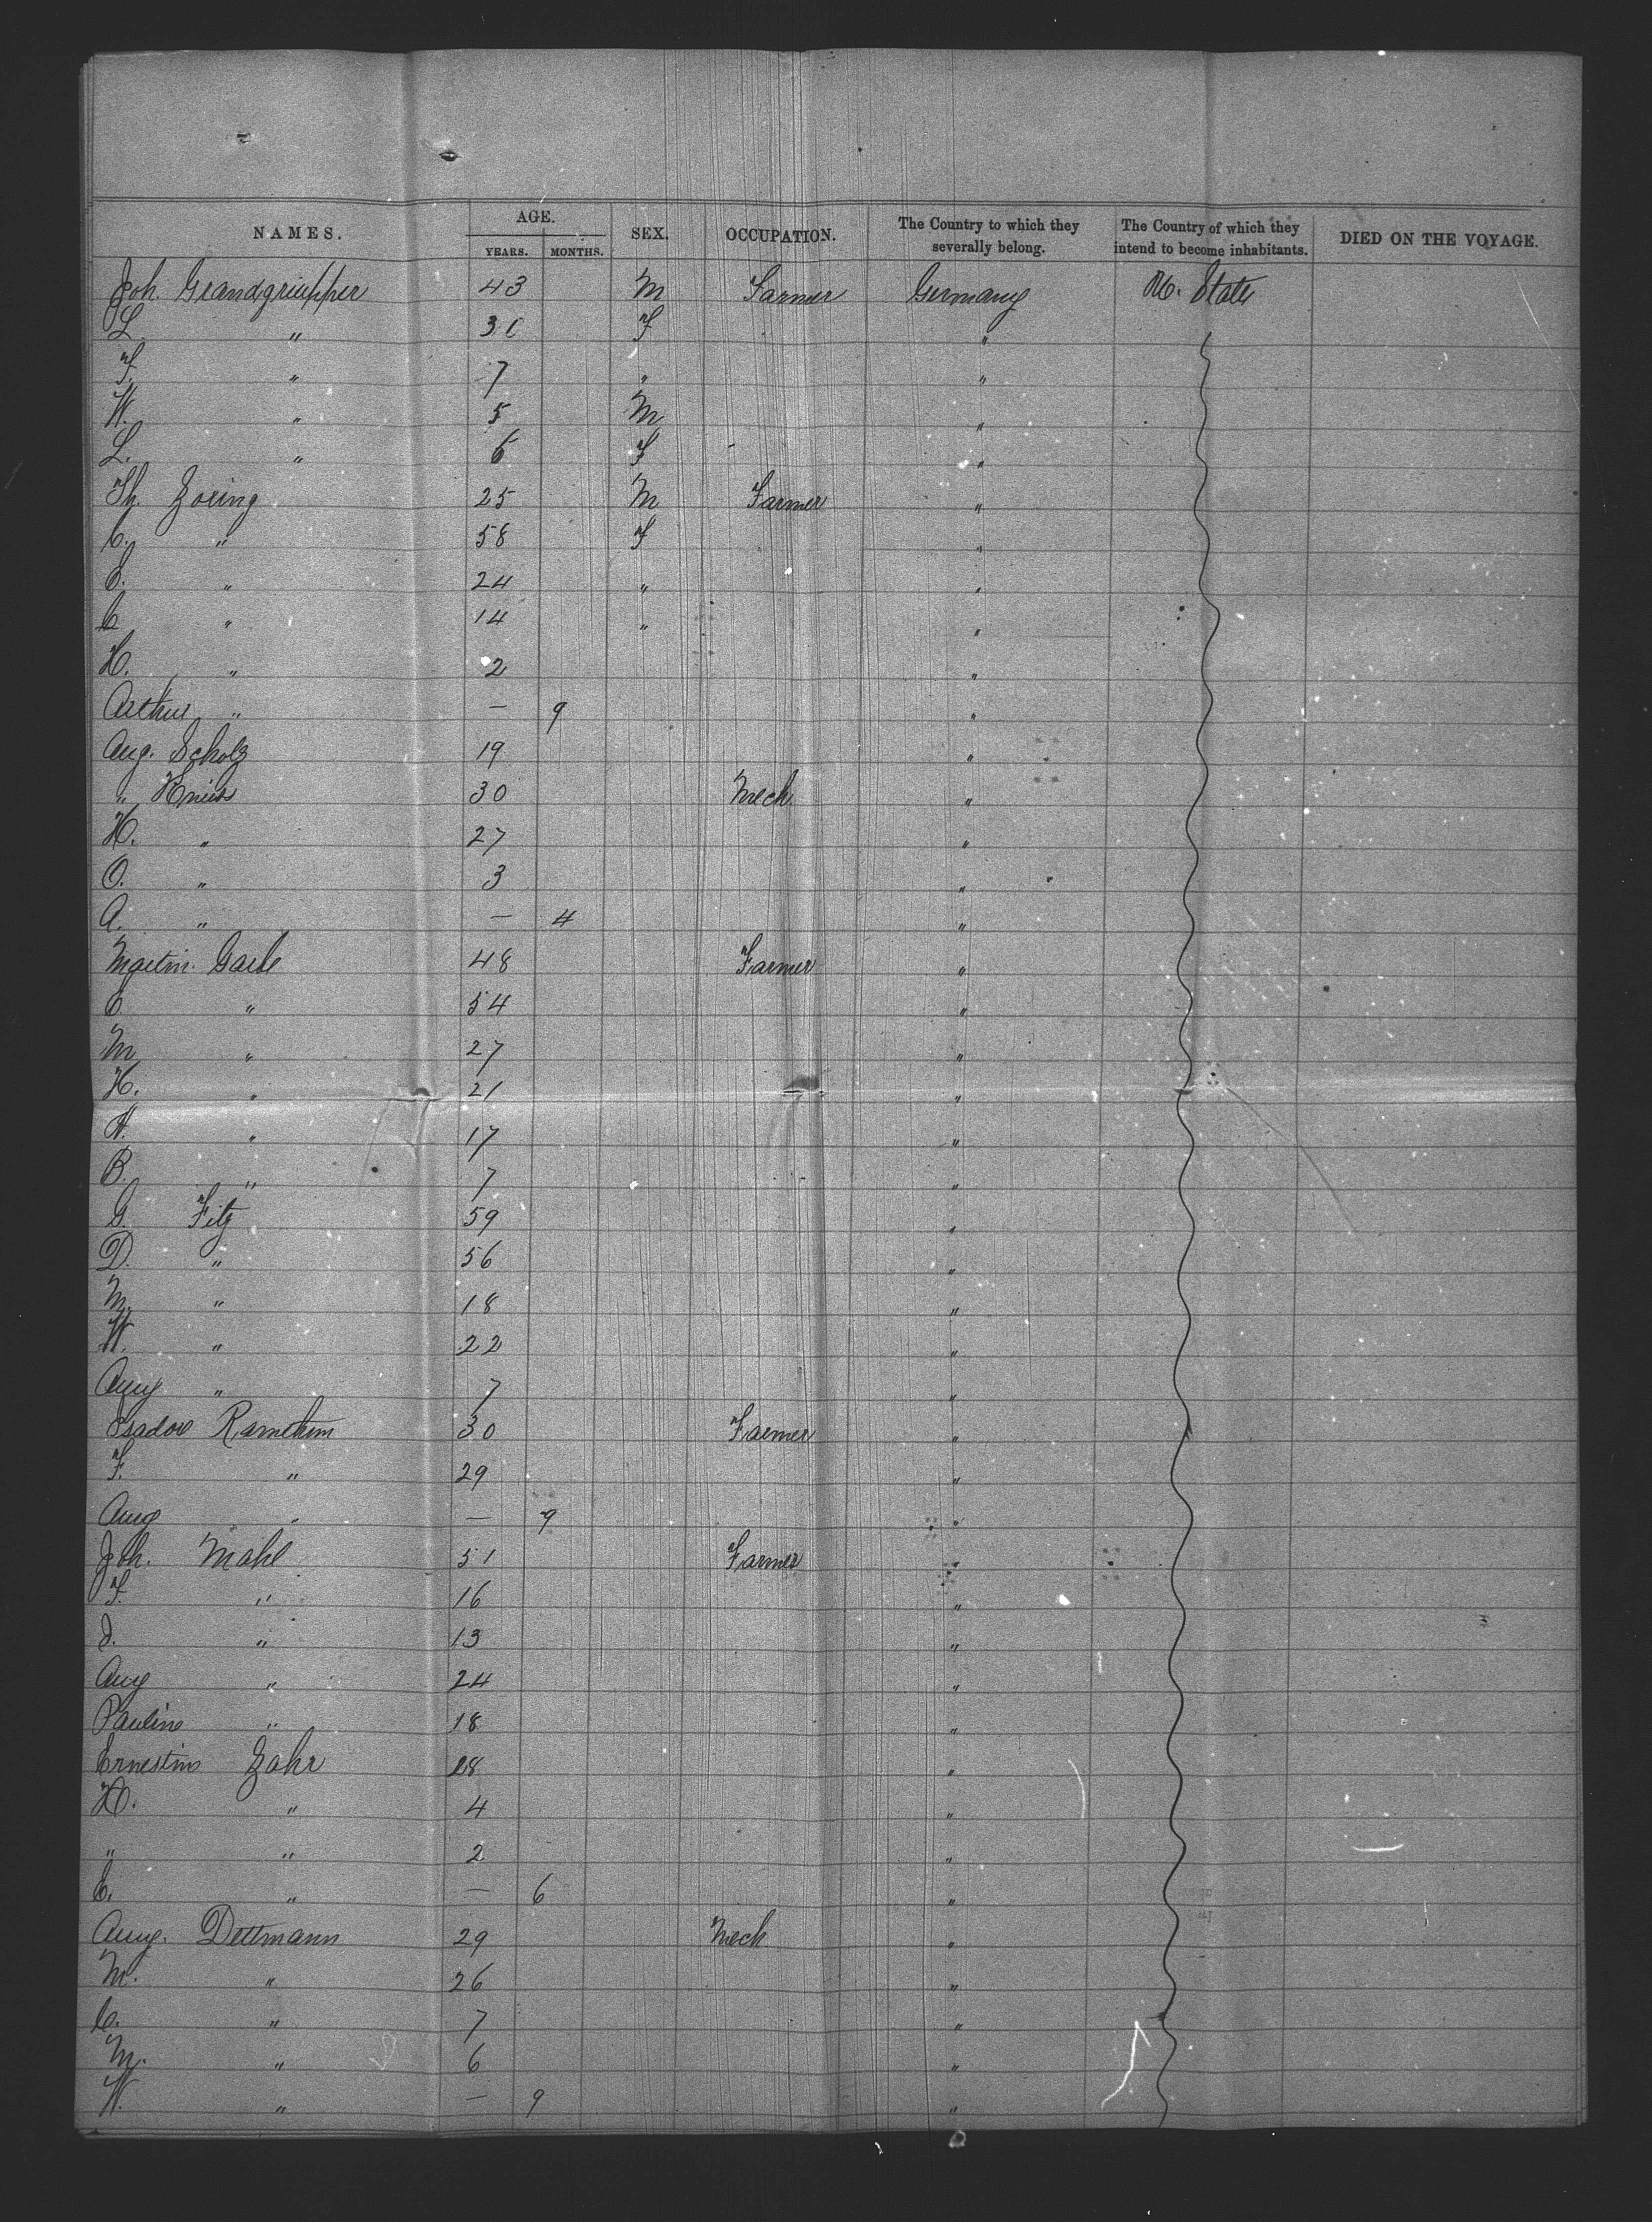 NAMES. AGE. YEARS. MONTHS. SEX. OCCUPATION. The Country to which they severally belong. The Country of which they intend to become inhabitants. DIED ON THE VOYAGE.
Joh. Grandgriepper 43 M Farmer Germany U. States
L. " 30 F "
F. " 7 " "
W. " 5 M "
L. " 6 F "
Th. Zoeing 25 M Farmer "
C. " 58 F "
E. " 24 " "
C " 14 " "
H. " 2 "
Arthur " — 9 "
Aug. Scholz 19 "
" Kniess 30 Mech "
H. " 27 "
O. " 3 "
A. " — 4 "
Martin Garbe 48 Farmer "
E " 54 "
M " 27 "
H. " 21 "
A. " 17 "
B. " 7 "
G. Fitz 59 "
D. " 56 "
M. " 18 "
W. " 22 "
Aug " 7 "
Isador 30 Farmer "
F. " 29 "
Aug " — 9 "
Joh. Mahl 51 Farmer "
F. " 16 "
J. " 13 "
Aug " 24 "
Pauline " 18 "
Ernestine Zahr 28 "
H. " 4 "
" " 2 "
E. " — 6 "
Aug. Dettmann 29 Mech "
M. " 26 "
C. " 7 "
M. " 6 "
W. " — 9 "